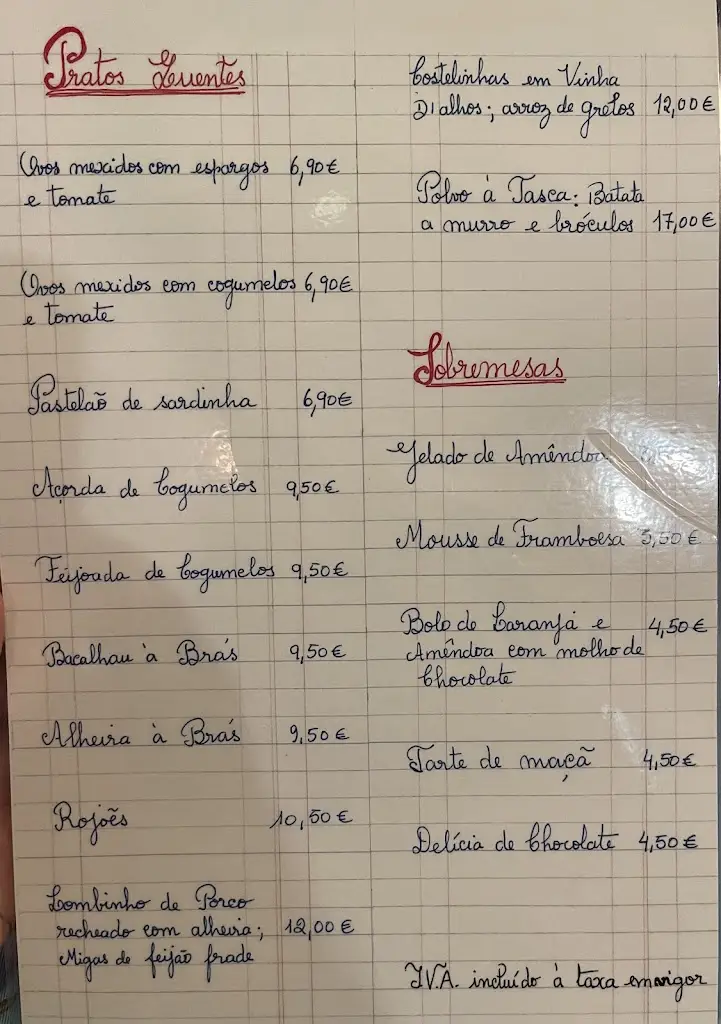 Pratos Quentes
Ovos mexidos com espargos 6,90€
e tomate
Ovos mexidos com cogumelos 6,90€
e tomate
Pastelão de sardinha 6,90€
Açorda de Cogumelos 9,50€
Feijoada de Cogumelos 9,50€
Bacalhau à Brás 9,50€
Alheira à Brás 9,50€
Rojões 10,50€
Lombinho de Porco
recheado com alheira; 12,00€
Migas de feijão frade
Costelinhas em Vinha
D'alhos; arroz de grelos 12,00€
Polvo à Tasca: Batata
a murro e bróculos 17,00€
Sobremesas
Gelado de Amêndoa
Mousse de Framboesa 3,50€
Bolo de Laranja e 4,50€
Amêndoa com molho de
Chocolate
Tarte de maçã 4,50€
Delícia de Chocolate 4,50€
I.V.A. incluído à taxa em vigor